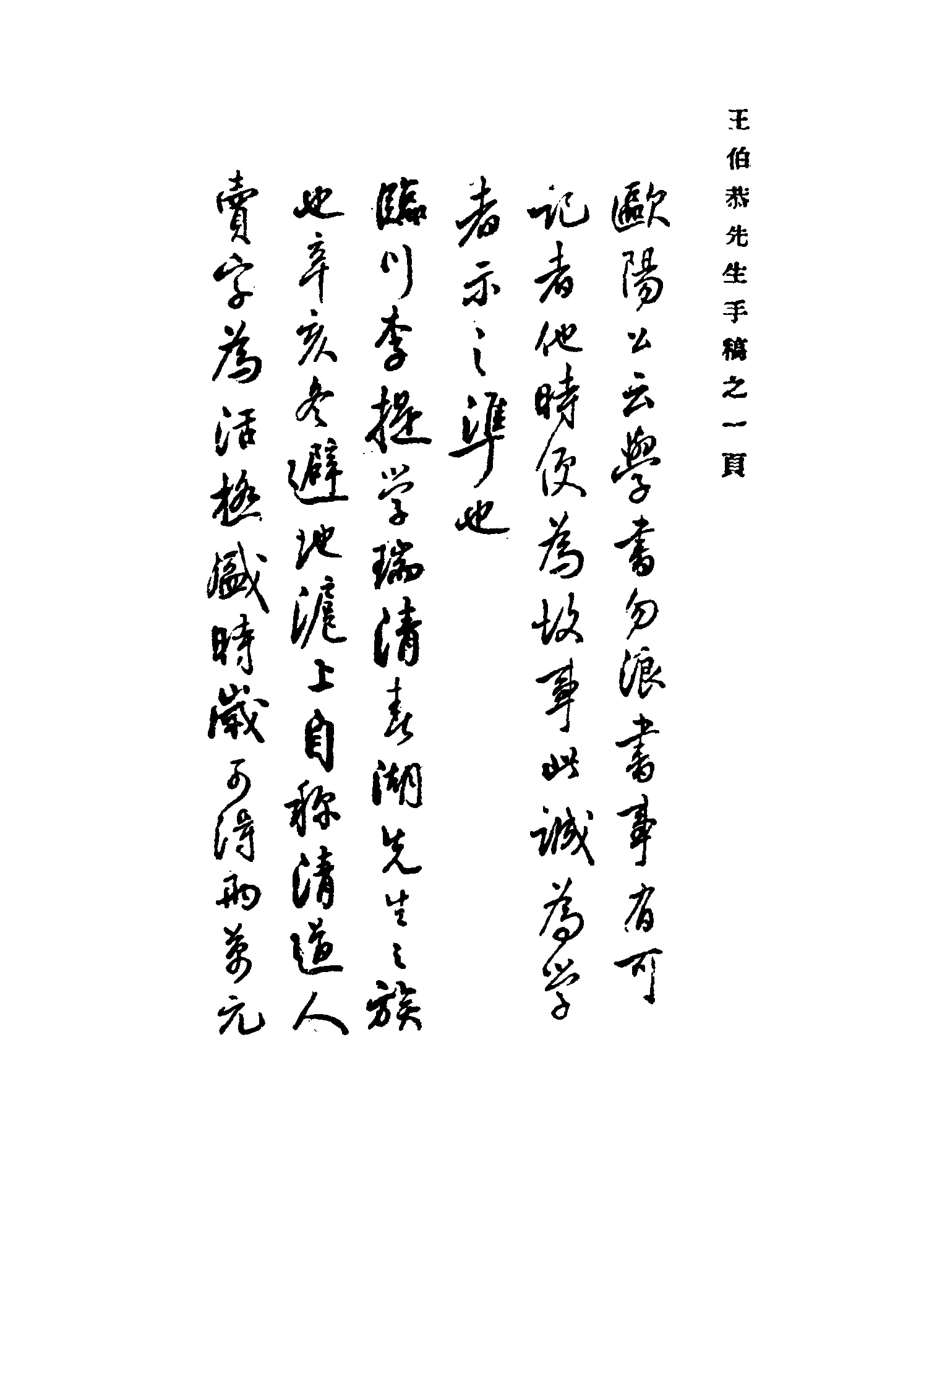 王伯恭先生手稿之一頁
歐陽公云學書勿浪書事有可
記者他時便為故事此誠為学
者示之準也
臨川李提学瑞清春湖先生之族
也辛亥冬避地滬上自称清道人
賣字為活極盛時歲可得兩萬元